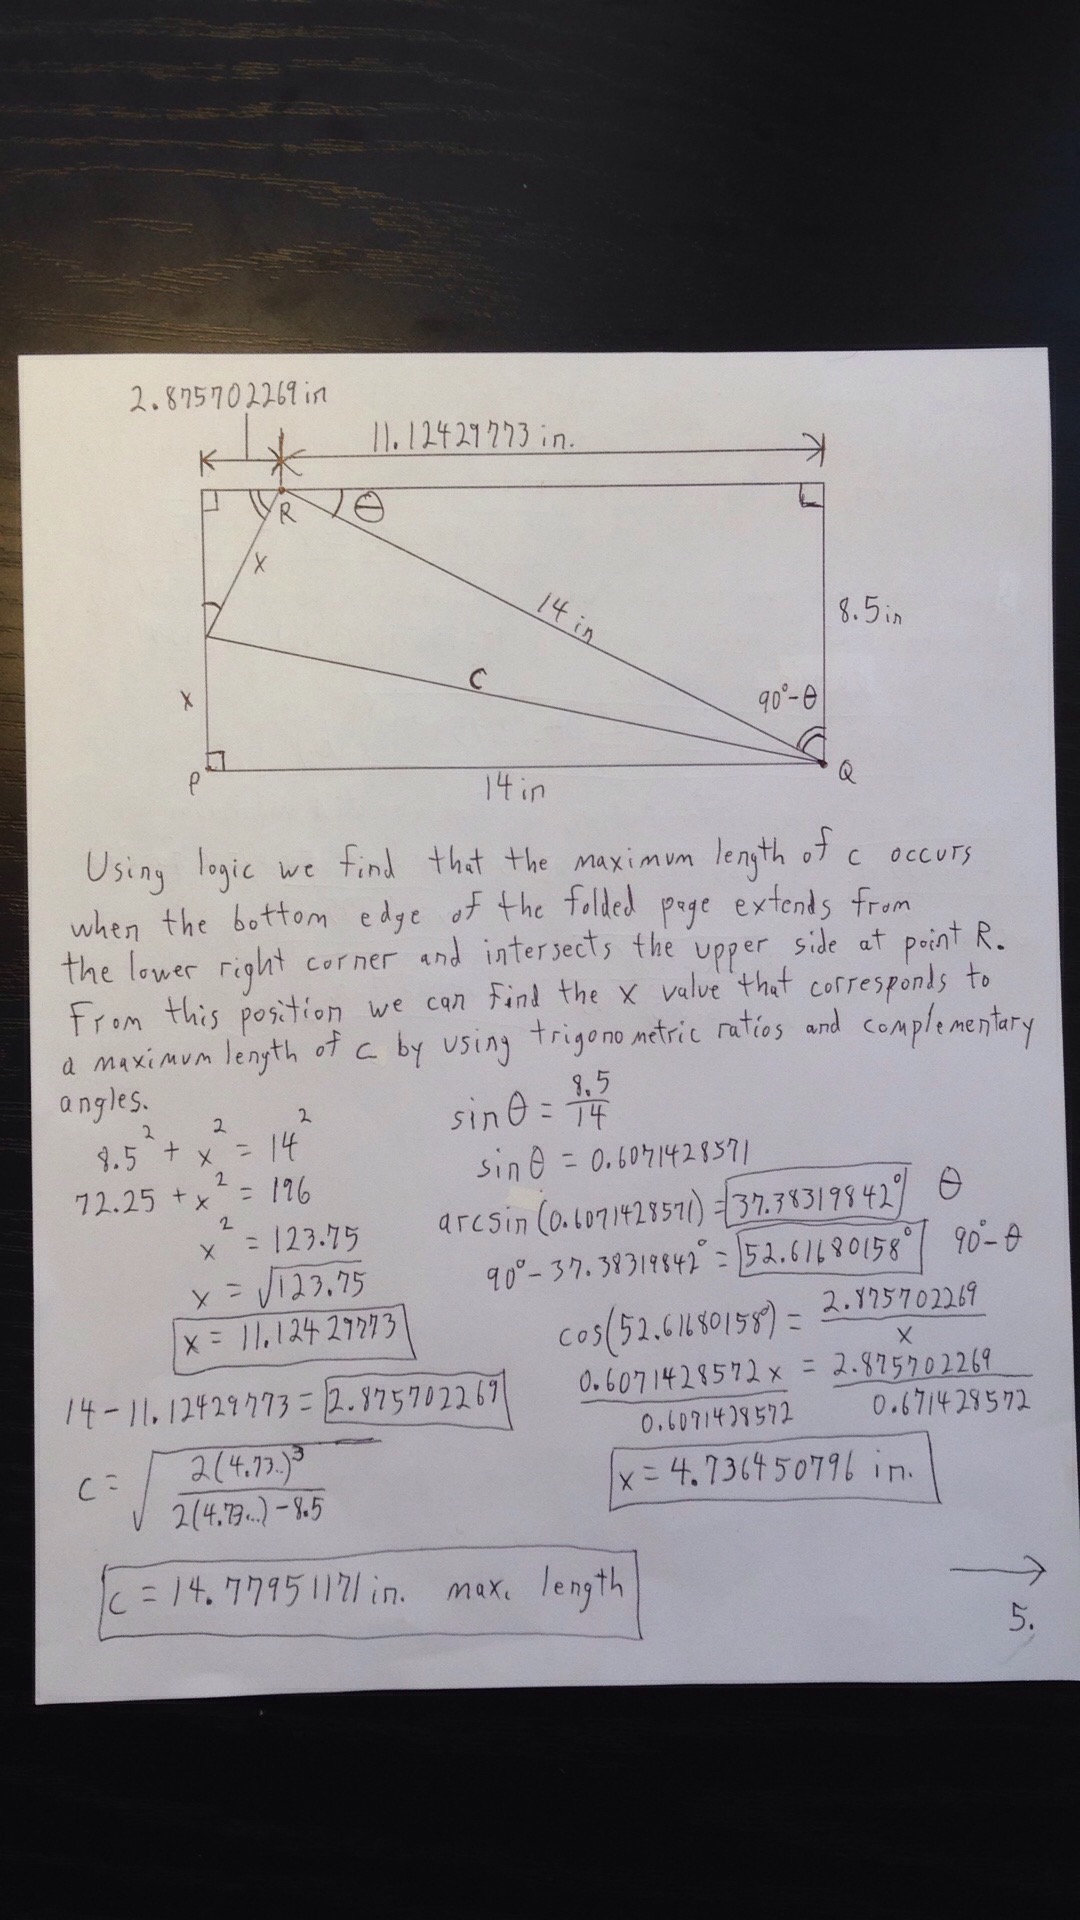 2.875702269 in
11.12429773 in.
R
θ
x
14 in
8.5 in
c
x
90°-θ
P
Q
14 in
Using logic we find that the maximum length of c occurs
when the bottom edge of the folded page extends from
the lower right corner and intersects the upper side at point R.
From this position we can find the x value that corresponds to
a maximum length of c by using trigonometric ratios and complementary
angles.
8.5² + x² = 14²
72.25 + x² = 196
x² = 123.75
x = √123.75
x = 11.12429773
14 - 11.12429773 = 2.875702269
sinθ = 8.5/14
sinθ = 0.6071428571
arcsin(0.6071428571) = 37.38319842° θ
90° - 37.38319842° = 52.61680158° 90°-θ
cos(52.61680158°) = 2.875702269/x
0.6071428572x/0.6071428572 = 2.875702269/0.671428572
x = 4.736450796 in.
c = √(2(4.73..)³/(2(4.73...)-8.5))
c = 14.77951171 in. max. length
→
5.